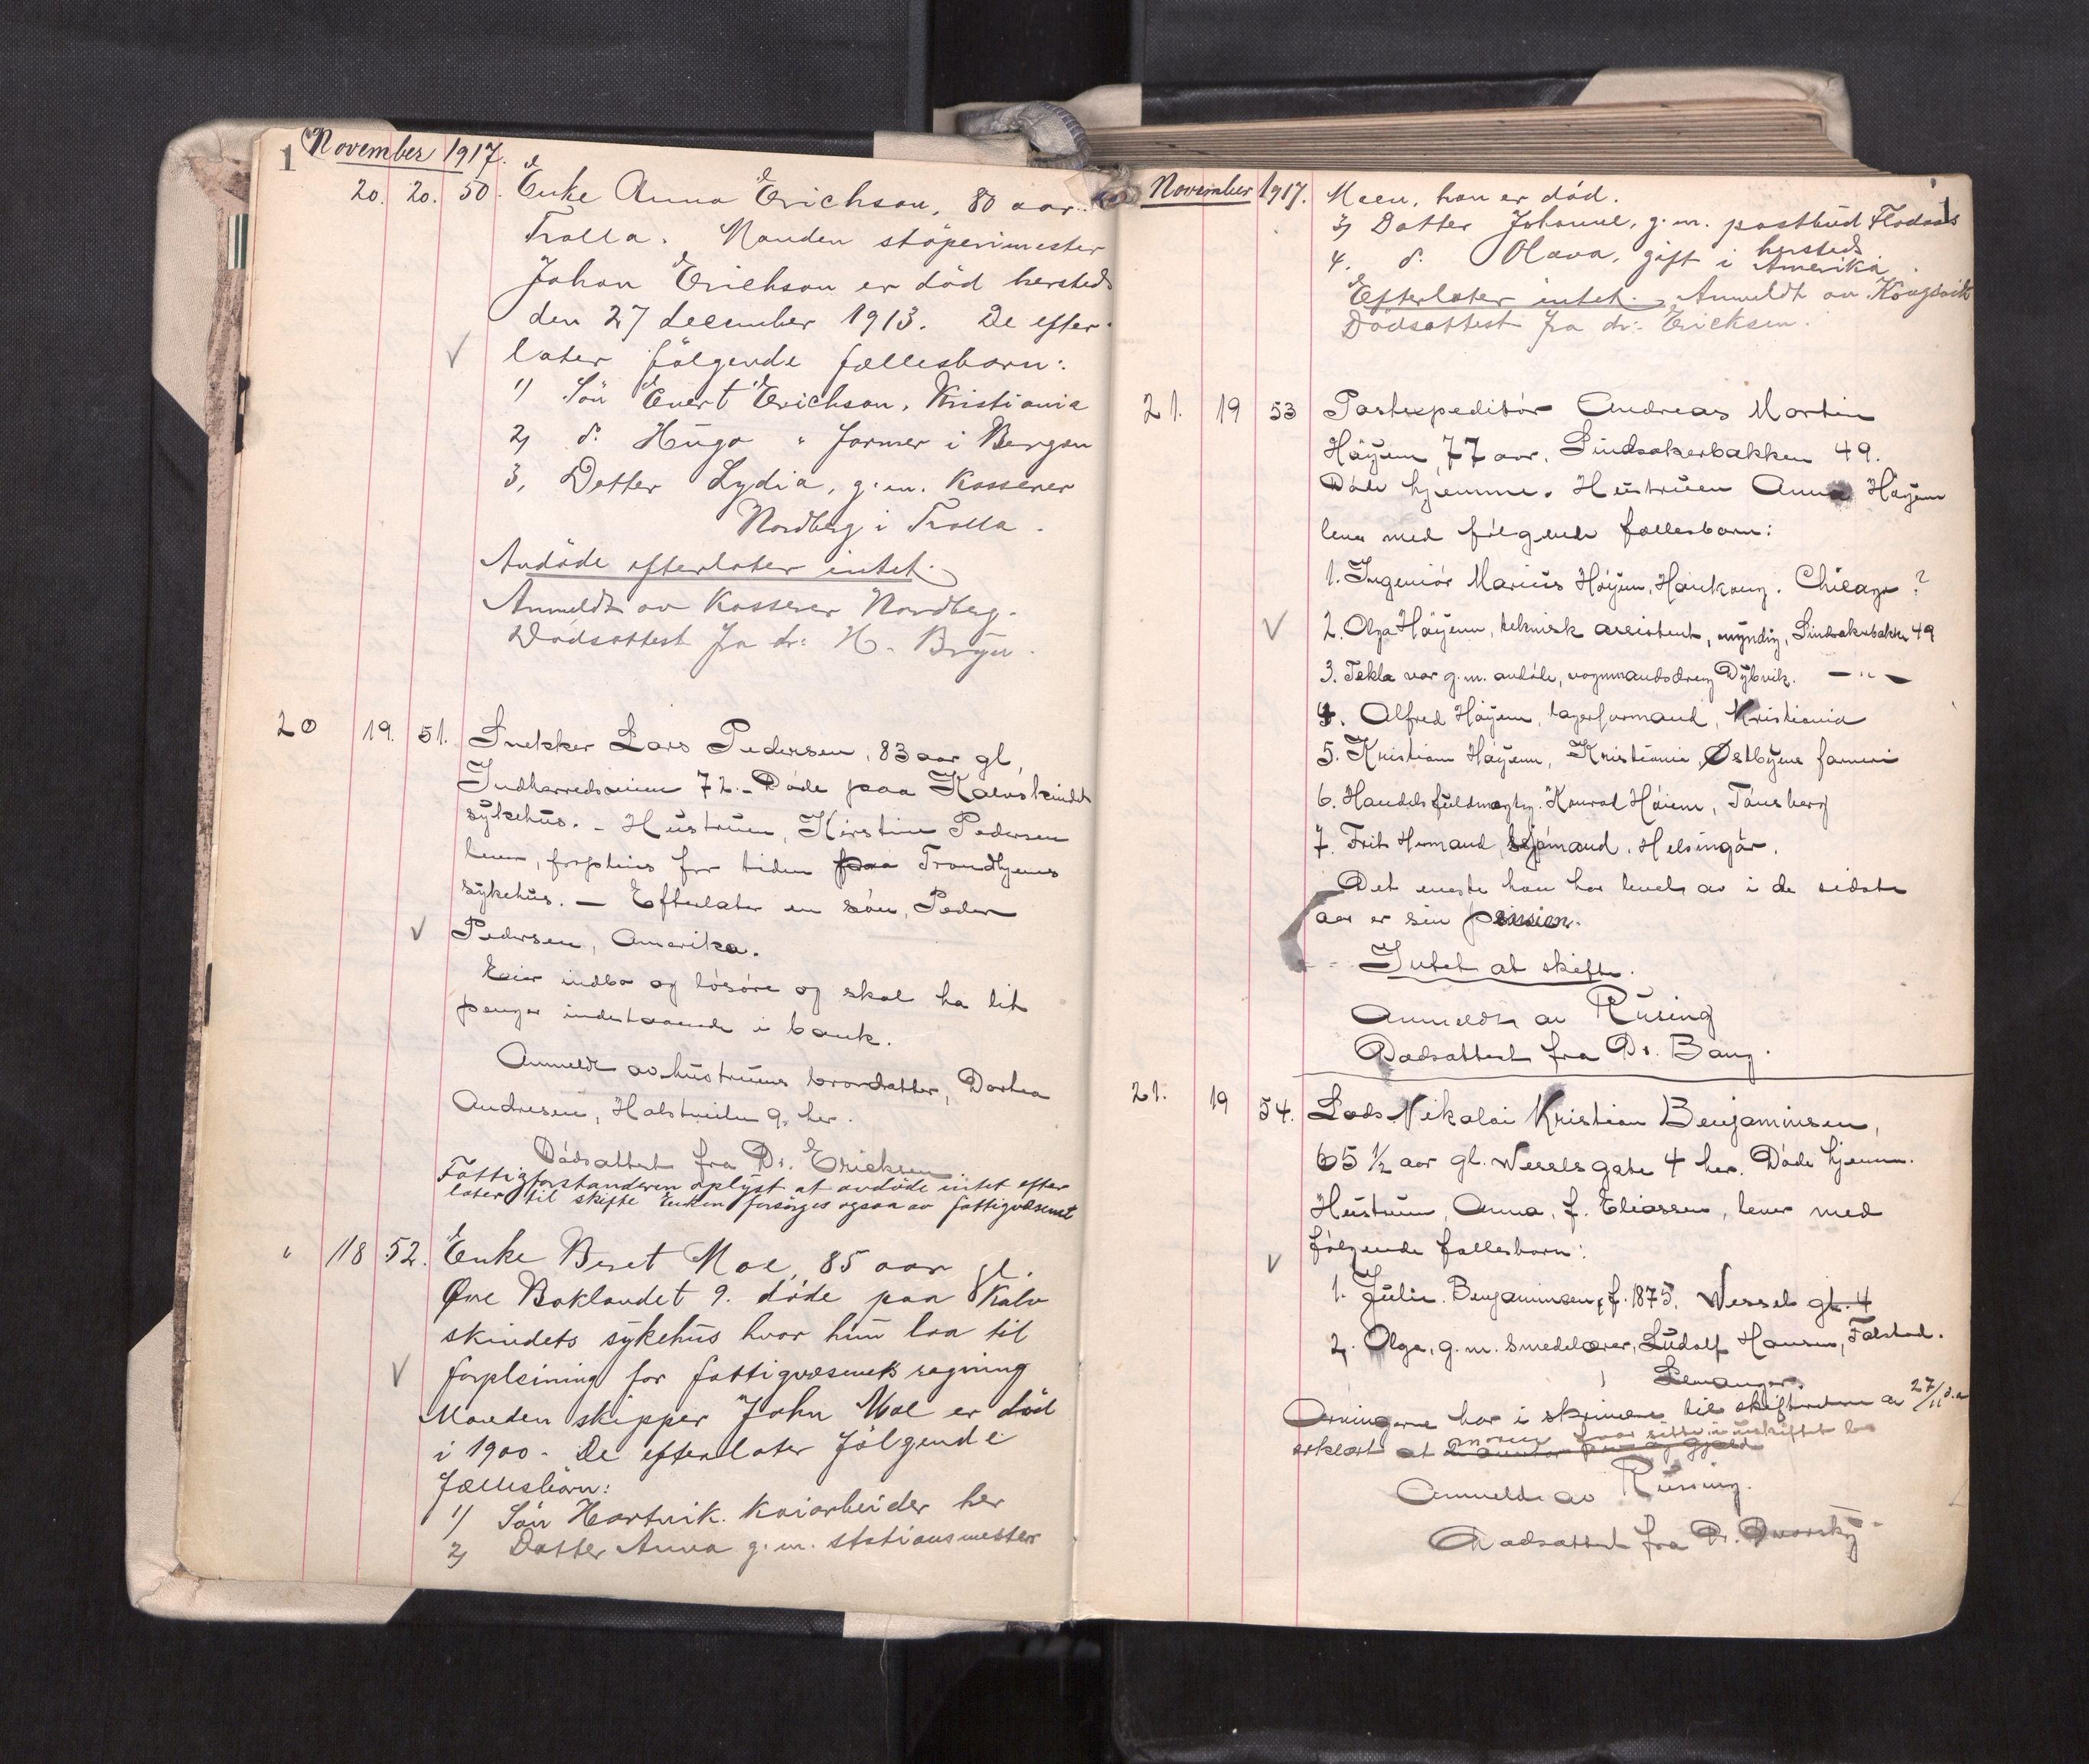 1
November 1917.
20. 20. 50. Enke Anna Erichson, 80 aar.
Trolla. Manden støperimester
Johan Erichson er død hersteds
den 27 december 1913. De efter-
later følgende fællesbarn:
1) Søn Evert Erichson, Kristiania
2) d: Hugo " former i Bergen
3, Datter Lydia, g.m. Kasserer
Nordberg i Trolla.
Avdøde efterlater intet.
Anmeldt av Kasserer Nordberg.
Dødsattest fra dr: H. Bryn.
20 19. 51. Snekker Lars Pedersen, 83 aar gl,
Indherredsveien 72. - Døde paa Kalvskindets
sykehus. - Hustruen, Kirstine Pedersen
lever, forpleies for tiden paa Trondhjems
sykehus. - Efterlater en søn, Peder
Pedersen, Amerika.
Eier indbo og løsøre og skal ha lit
penger indestaaende i bank.
Anmeldt av hustruens brordatter, Dorthea
Andresen, Halstveiten 9, her.
Dødsattest fra Dr. Ericksen
Fattigforstanderen oplyst at avdøde intet efter
later til skifte Enken forsørges ogsaa av fattigvæsenet
" 18 52. Enke Beret Moe, 85 aar gl.
Øvre Baklandet 9. døde paa Kalv
skindets sykehus hvor hun laa til
forpleining for fattigvæsenets regning
Manden skipper John Moe er død
i 1900 - De efterlater følgende
fællesbørn:
1) Søn Hartvik. Kaiarbeider her
2) Datter Anna g.m. stationsmester
November 1917. 1
Meen, han er död.
3) Datter Johanne, g.m. postbud Flodaas
hersteds
4. d: Olava, gift i Amerika
Efterlater intet. Anmeldt av Kongsvik
Dødsattest fra dr: Ericksen.
21. 19 53 Postexpeditör Andreas Martin
Høyem, 77 aar, Lindsakerbakken 49.
Døde hjemme. Hustruen Anna Høyem
lever med følgende fællesbarn:
1. Ingeniör Marius Høyem, Chicago?
2. Olga Høyem, teknisk assistent, myndig, Lindsakerbakken 49
3. Tekla var g.m. avdøde, vognmandsdreng Dybvik. - " -
4. Alfred Høyem, lagerformand, Kristiania
5. Kristian Høyem, Kristiania, Østbyens farveri
6. Handelsfuldmægtig. Konrad Høiem, Tønsberg
7. Frits Hermand, sjømand, Helsingør.
Det eneste han har levet av i de sidste
aar er sin pension.
Intet at skifte.
Anmeldt av Rusing
Dødsattest fra Dr. Bang.
21. 19 54. Lods Nikolai Kristian Benjaminsen,
65 1/2 aar gl. Wessels gate 4 her. Døde hjemme.
Hustruen, Anna, f. Eliassen, lever med
følgende fællesbarn:
1. Julie Benjaminsen, f. 1875, Wessels gt. 4
2. Olga, g.m. smedelærer, Ludolf Hansen, Falstad.
Levanger.
Arvingerne har i skrivelse til skifteretten av 27/11 d.a
erklært at moren faar sitte i uskiftet bo
Anmeldt av Rusing.
Dødsattest fra Dr. Dvorsky